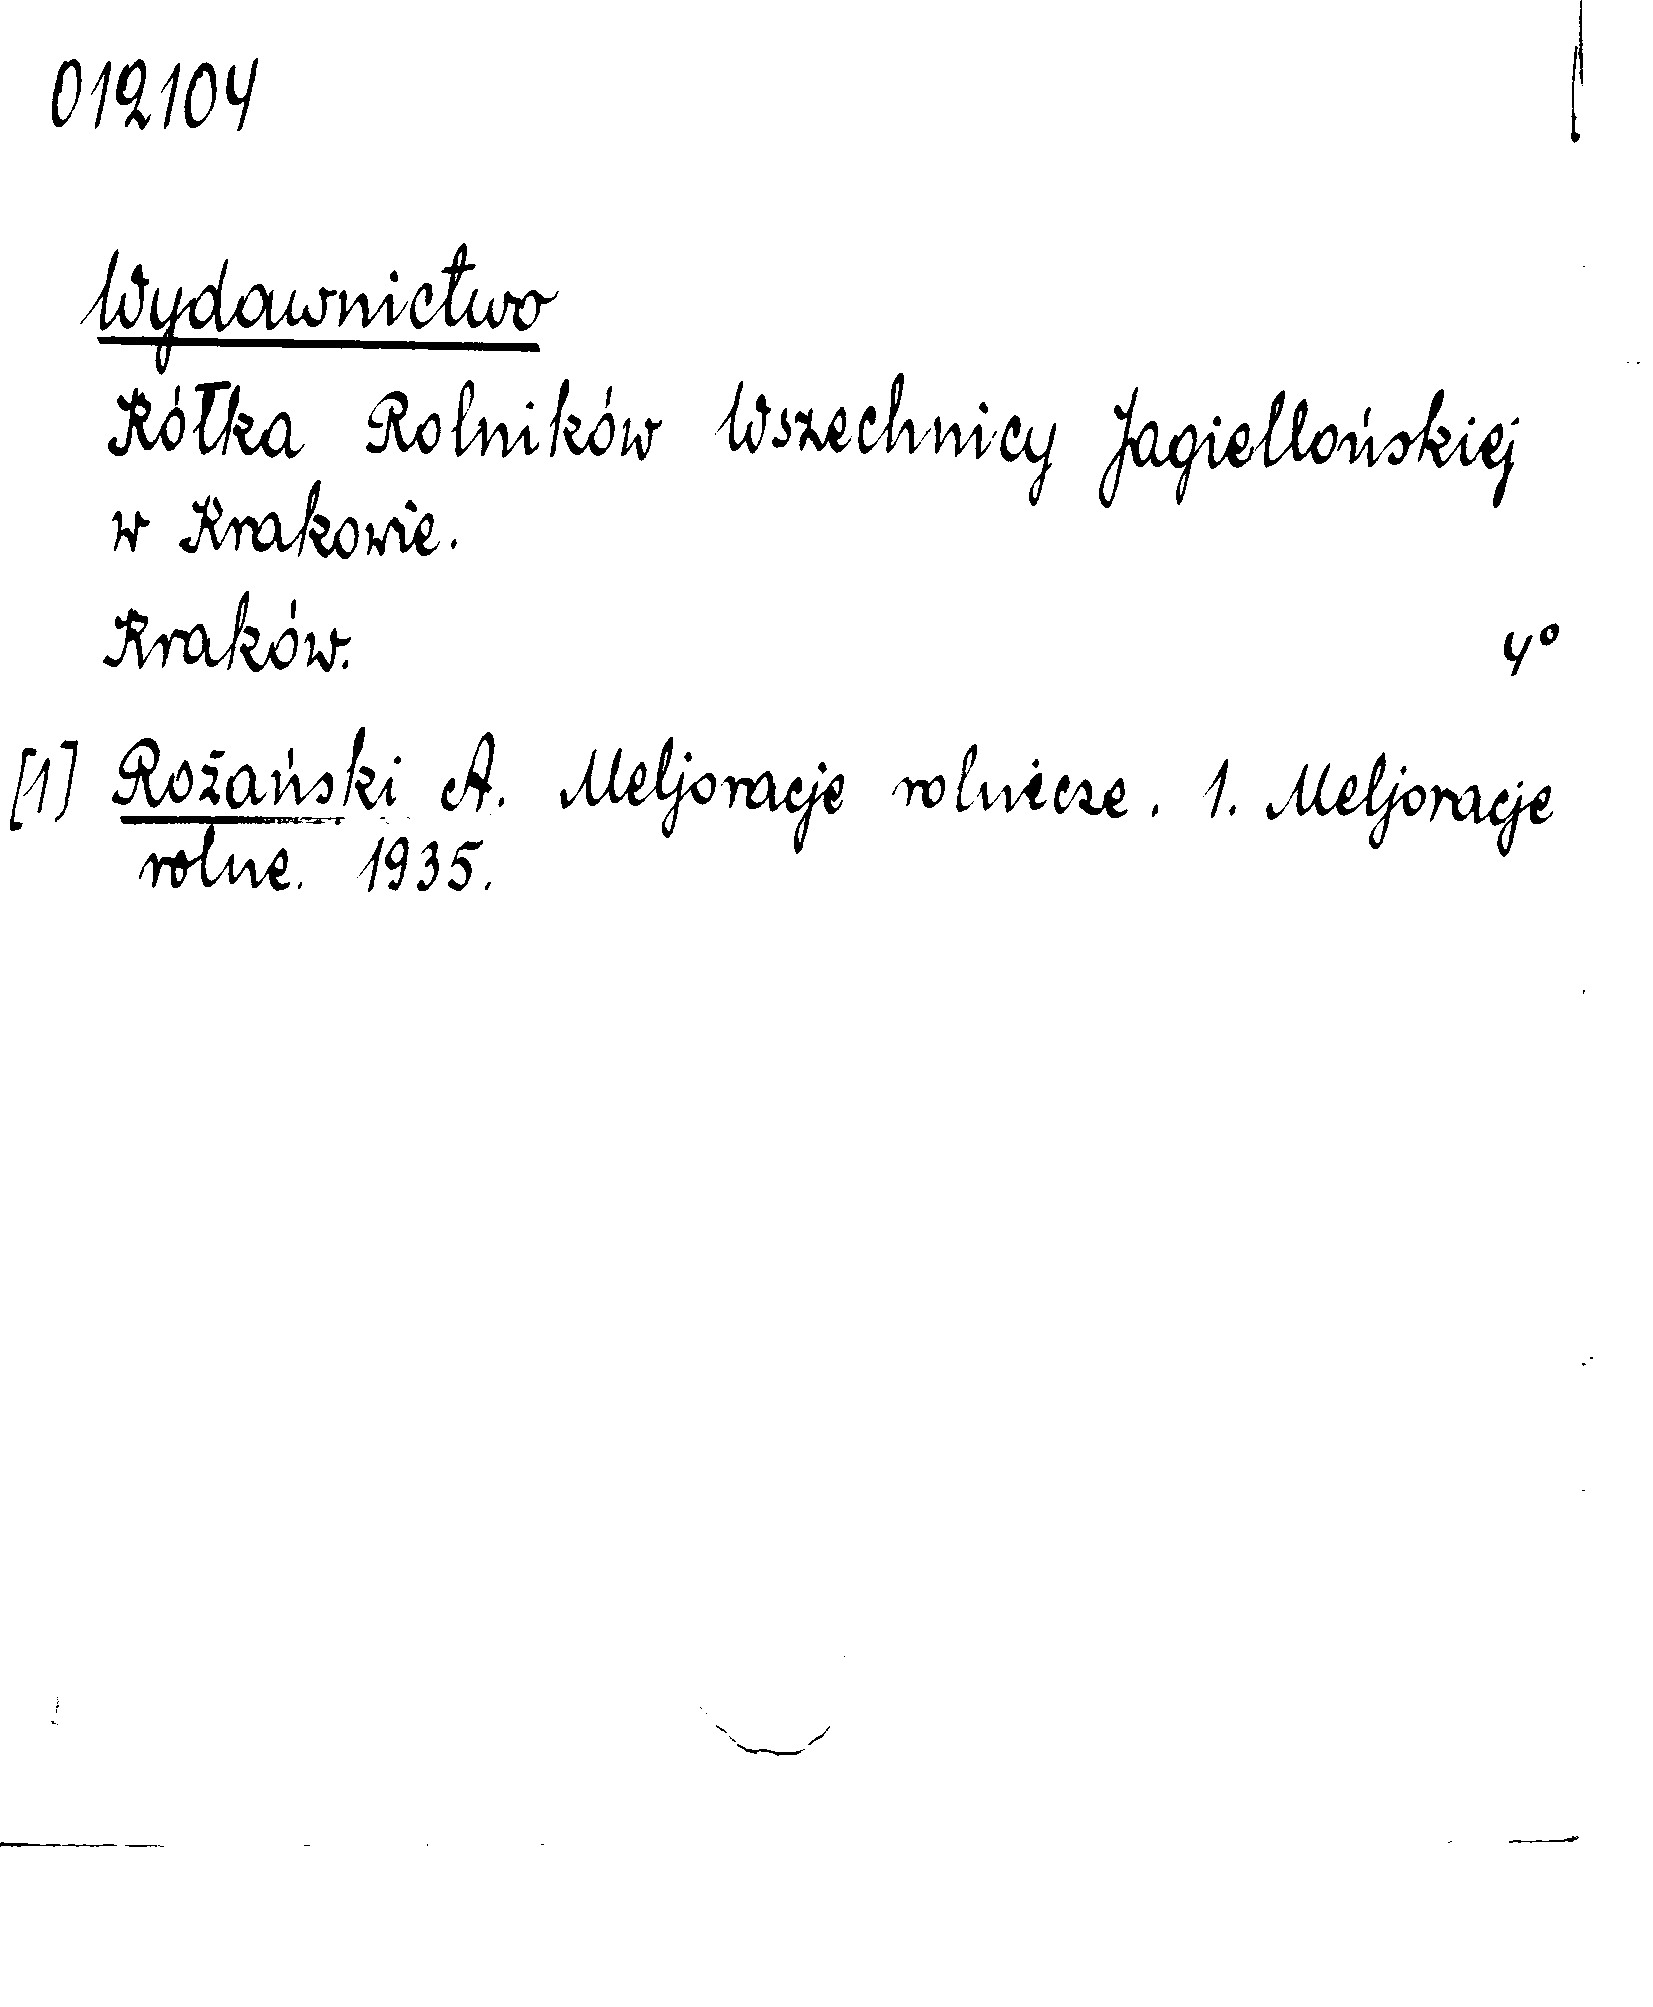 012104
Wydawnictwo
Kółka Rolników Wszechnicy Jagiellońskiej
w Krakowie.
Kraków. 4°
[1] Rożański A. Meljoracje rolnicze. 1. Meljoracje
rolne. 1935.